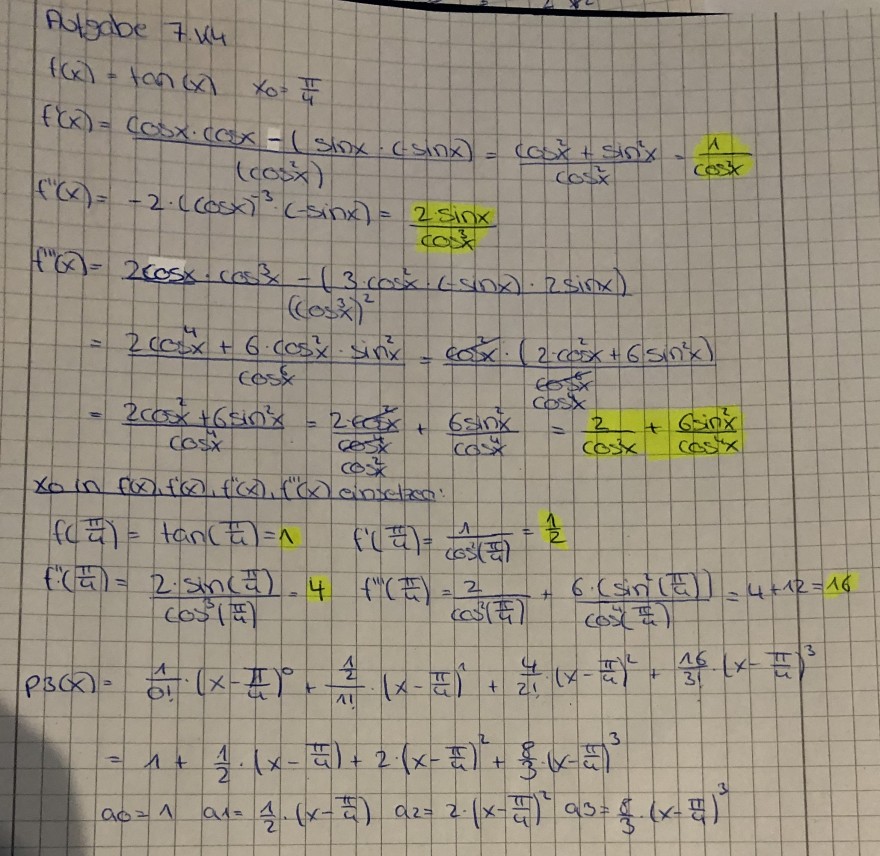 Aufgabe 7.44
f(x) = tan(x) x0 = π/4
f'(x) = (cosx · cosx - (sinx · (-sinx)) / (cos²x) = (cos²x + sin²x) / cos²x = 1/cos²x
f''(x) = -2 · (cosx)⁻³ · (-sinx) = 2·sinx / cos³x
f'''(x) = (2cosx · cos³x - (3·cos²x · (-sinx) · 2sinx)) / (cos³x)²
= (2cos⁴x + 6·cos²x · sin²x) / cos⁶x = cos²x · (2·cos²x + 6sin²x) / cos⁶x cos⁴x
= (2cos²x + 6sin²x) / cos⁴x = 2·cos²x / cos⁴x cos²x + 6sin²x / cos⁴x = 2/cos²x + 6sin²x/cos⁴x
x0 in f(x), f'(x), f''(x), f'''(x) einsetzen:
f(π/4) = tan(π/4) = 1 f'(π/4) = 1/cos²(π/4) = 1/2
f''(π/4) = 2·sin(π/4) / cos³(π/4) = 4 f'''(π/4) = 2/cos²(π/4) + 6·(sin²(π/4)) / cos⁴(π/4) = 4+12 = 16
p3(x) = 1/0! · (x - π/4)⁰ + (1/2)/1! · (x - π/4)¹ + 4/2! · (x - π/4)² + 16/3! · (x - π/4)³
= 1 + 1/2 · (x - π/4) + 2 · (x - π/4)² + 8/3 · (x - π/4)³
a0 = 1 a1 = 1/2 · (x - π/4) a2 = 2 · (x - π/4)² a3 = 8/3 · (x - π/4)³